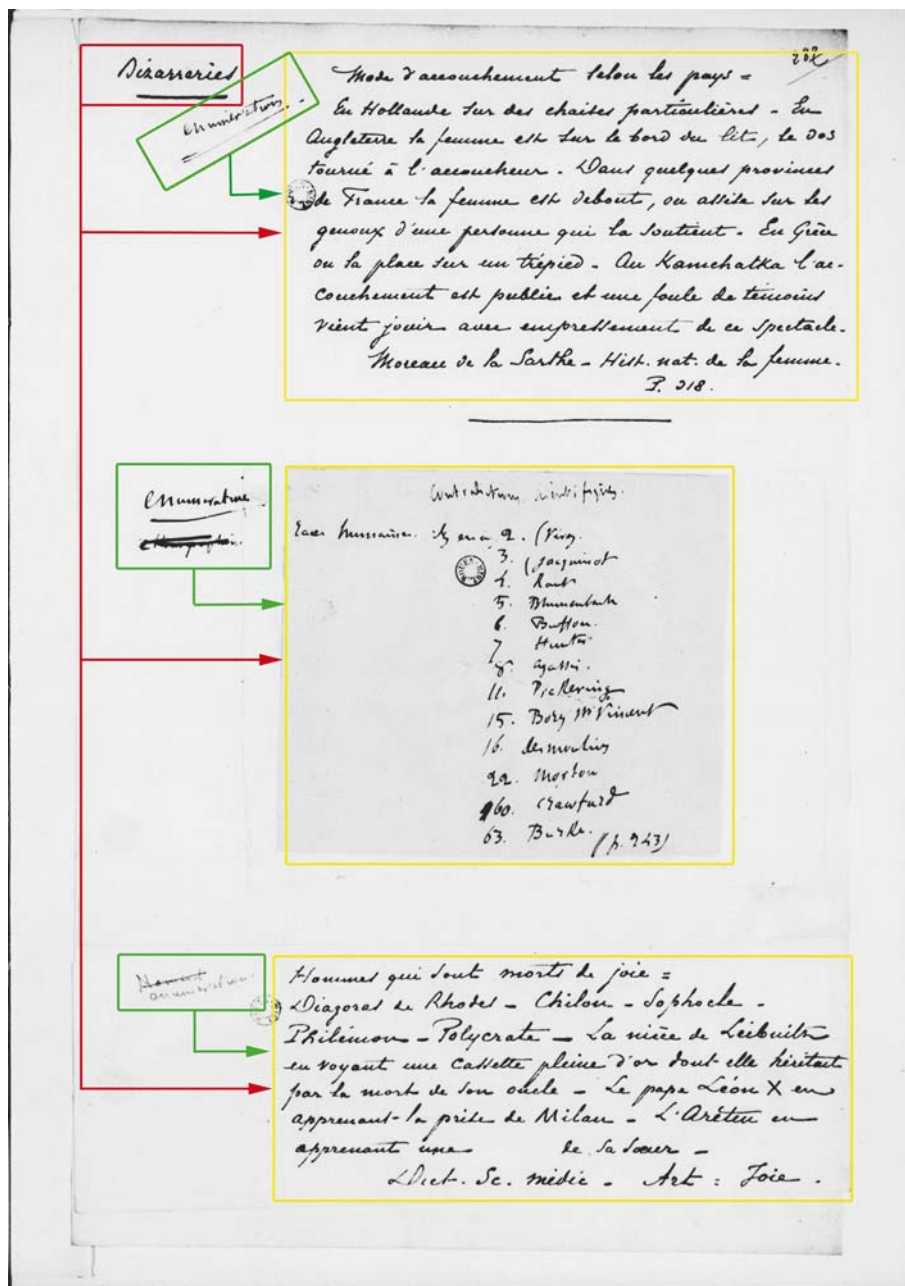 Bizarreries
202
enumération
Mode d'accouchement selon les pays =
En Hollande sur des chaises particulières - En
Angleterre la femme est sur le bord du lit, le dos
tourné à l'accoucheur. Dans quelques provinces
de France la femme est debout, ou assise sur les
genoux d'une personne qui la soutient. En Grèce
on la place sur un trépied. Au Kamchatka l'ac-
couchement est public et une foule de témoins
vient jouir avec empressement de ce spectacle.
Moreau de la Sarthe - Hist. nat. de la femme.
P. 218.
enumération
Contradictions scientifiques.
Races humaines. il y en a 2. (Virey
3. (Jacquinot
4. Kant
5. Blumenbach
6. Buffon.
7 Hunter
8. Agassiz.
11. Pickering
15. Bory St Vincent
16. desmoulins
22. Morton
60. Crawfurd
63. Burke.
(p. 243)
enumération
Hommes qui sont morts de joie =
Diagoras de Rhodes - Chilon - Sophocle -
Philémon - Polycrate - La nièce de Leibnitz
en voyant une cassette pleine d'or dont elle héritait
par la mort de son oncle - Le pape Léon X en
apprenant la prise de Milan - L'Arétin en
apprenant une de sa soeur -
Dict. Sc. médic - Art : Joie.